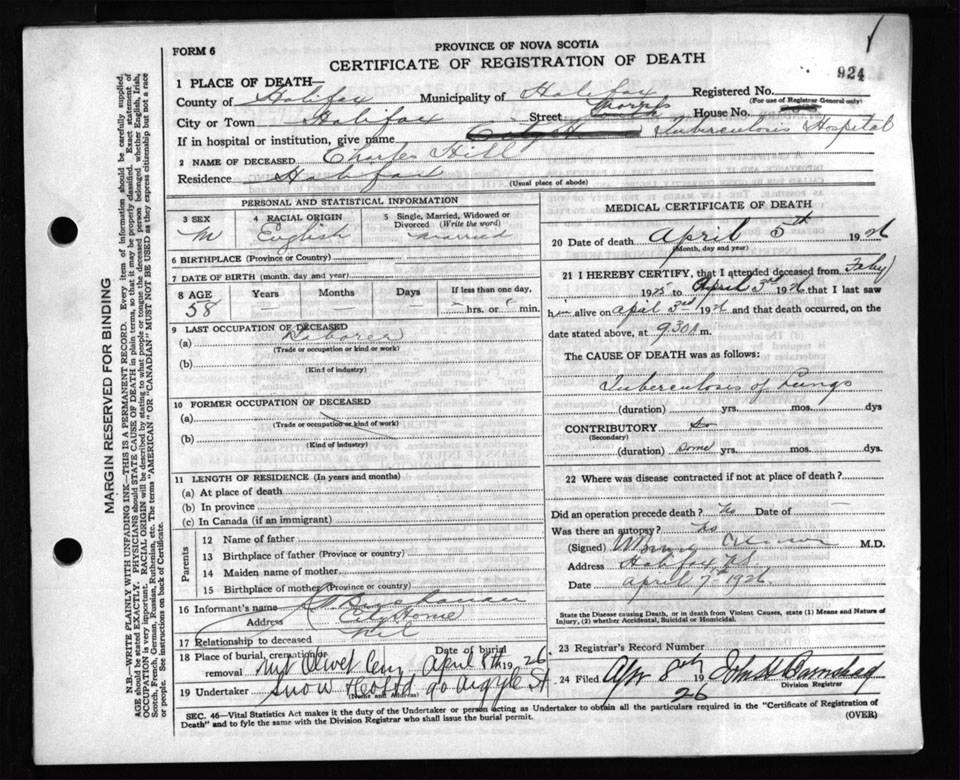 FORM 6
PROVINCE OF NOVA SCOTIA
CERTIFICATE OF REGISTRATION OF DEATH
924
1 PLACE OF DEATH—
County of Halifax Municipality of Halifax Registered No.
(For use of Registrar General only)
City or Town Halifax Street South House No.
If in hospital or institution, give name Tuberculosis Hospital
2 NAME OF DECEASED Charles Hill
Residence Halifax
(Usual place of abode)
PERSONAL AND STATISTICAL INFORMATION
3 SEX M
4 RACIAL ORIGIN English
5 Single, Married, Widowed or Divorced (Write the word) Married
6 BIRTHPLACE (Province or Country)
7 DATE OF BIRTH (month, day and year)
8 AGE 58 Years — Months — Days If less than one day, hrs. or min.
9 LAST OCCUPATION OF DECEASED
(a) Laborer
(Trade or occupation or kind of work)
(b)
(Kind of industry)
10 FORMER OCCUPATION OF DECEASED
(a)
(Trade or occupation or kind or work)
(b)
(Kind of industry)
11 LENGTH OF RESIDENCE (In years and months)
(a) At place of death
(b) In province
(c) In Canada (if an immigrant)
Parents
12 Name of father
13 Birthplace of father (Province or country)
14 Maiden name of mother
15 Birthplace of mother (Province or country)
16 Informant's name Buchanan
Address City Home
17 Relationship to deceased Nil
18 Place of burial, cremation or removal Mt Olivet Cem Date of burial April 8th 1926
19 Undertaker Snow & Co Ltd 90 Argyle St
(Name and address)
MEDICAL CERTIFICATE OF DEATH
20 Date of death April 5th 1926
(Month, day and year)
21 I HEREBY CERTIFY, that I attended deceased from Feby
1925 to April 3rd 1926 that I last saw
him alive on April 3rd 1926 and that death occurred, on the
date stated above, at 930 A m.
The CAUSE OF DEATH was as follows:
Tuberculosis of Lungs
(duration) yrs. mos. dys
CONTRIBUTORY
(Secondary)
(duration) yrs. mos. dys
22 Where was disease contracted if not at place of death?
Did an operation precede death? No Date of
Was there an autopsy? No
(Signed) M.D.
Address Halifax N.S.
Date April 7th 1926
State the Disease causing Death, or in death from Violent Causes, state (1) Means and Nature of Injury, (2) whether Accidental, Suicidal or Homicidal.
23 Registrar's Record Number
24 Filed Apr 8th 1926
Division Registrar
SEC. 46—Vital Statistics Act makes it the duty of the Undertaker or person acting as Undertaker to obtain all the particulars required in the "Certificate of Registration of
Death" and to fyle the same with the Division Registrar who shall issue the burial permit.
(OVER)
MARGIN RESERVED FOR BINDING
N.B.—WRITE PLAINLY WITH UNFADING INK—THIS IS A PERMANENT RECORD. Every item of information should be carefully supplied.
AGE should be stated EXACTLY. PHYSICIANS should STATE CAUSE OF DEATH in plain terms, so that it may be properly classified. Exact statement of
OCCUPATION is very important. RACIAL ORIGIN will be described by stating to what people or tongue the deceased person belonged whether English, Irish,
Scotch, French, German, Russian, Ruthenian, etc. The terms "AMERICAN" OR "CANADIAN" MUST NOT BE USED as they express citizenship but not a race
or people. See instructions on back of Certificate.